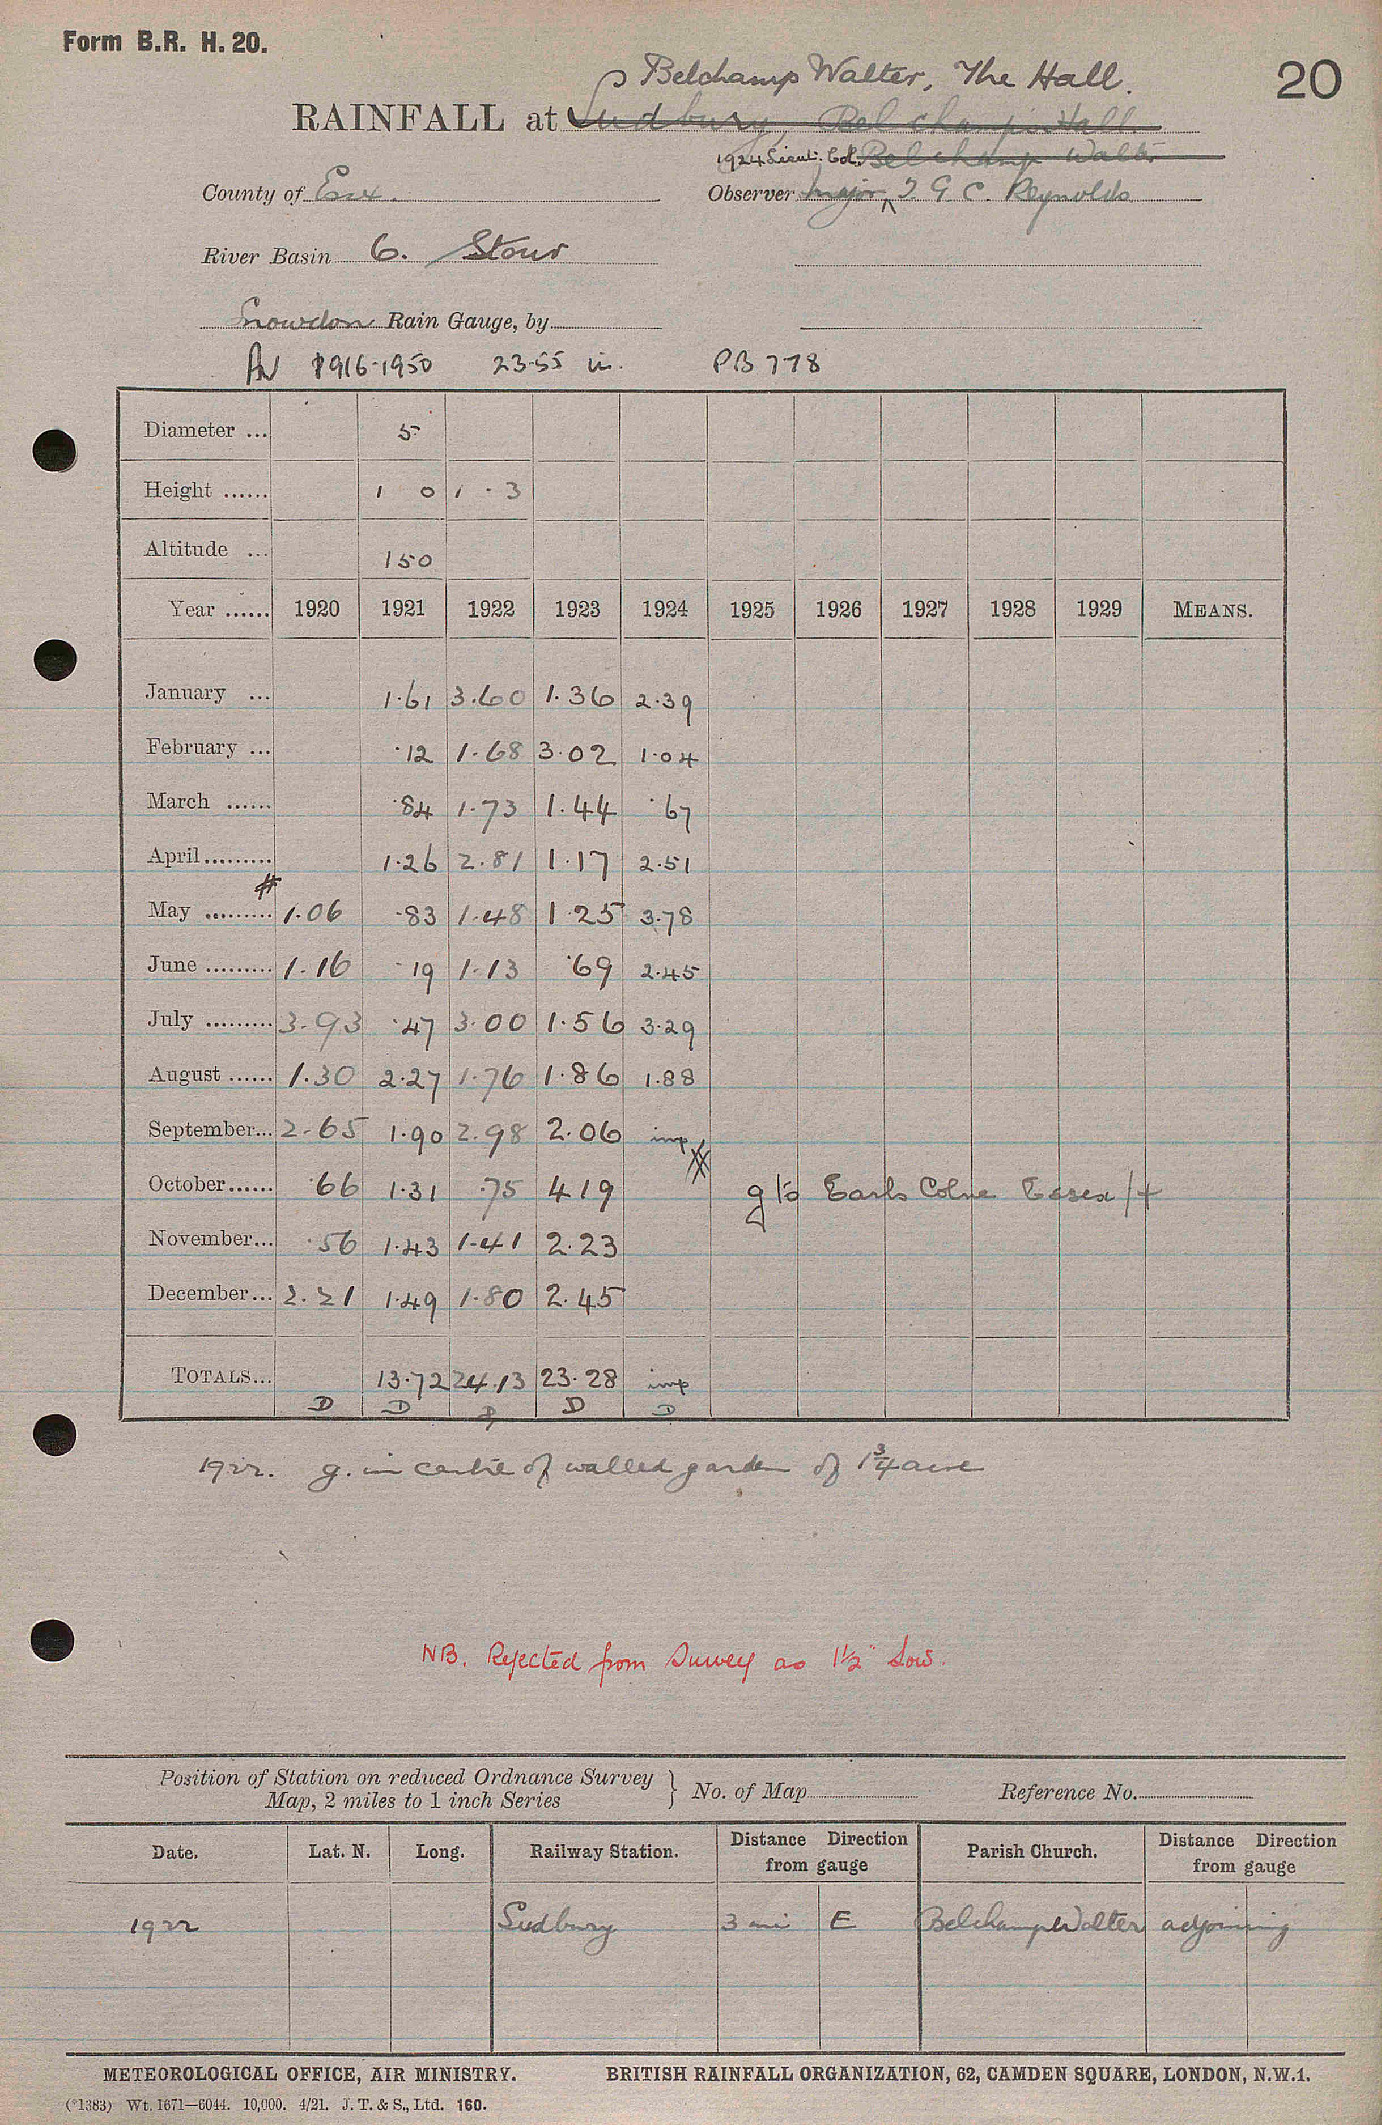 Form B.R. H. 20.
20
Belchamp Walter, The Hall.
RAINFALL at Sudbury, Belchamp Hall.
1924 Lieut. Col. Belchamp Walter
County of Essex. Observer Major, G C. Reynolds
River Basin 6. Stour
Snowdon Rain Gauge, by
AV 1916-1950 23.55 in. PB 778
Diameter ... 5
Height ...... 1 0 1 . 3
Altitude ... 150
Year ...... 1920 1921 1922 1923 1924 1925 1926 1927 1928 1929 MEANS.
January ... 1.61 3.60 1.36 2.39
February ... .12 1.68 3.02 1.04
March ...... .84 1.73 1.44 .67
April ......... 1.26 2.81 1.17 2.51
May ......... # 1.06 .83 1.48 1.25 3.78
June ......... 1.16 .19 1.13 .69 2.45
July ......... 3.93 .47 3.00 1.56 3.29
August ...... 1.30 2.27 1.76 1.86 1.88
September... 2.65 1.90 2.98 2.06 imp
October...... .66 1.31 .75 4.19 g to Earls Colne Essex /4
November... .56 1.43 1.41 2.23
December... 2.21 1.49 1.80 2.45
TOTALS... 13.72 24.13 23.28 imp
D D D D D
1922. g. in centre of walled garden of 1 3/4 acre
NB. Rejected from Survey as 1½" low.
Position of Station on reduced Ordnance Survey Map, 2 miles to 1 inch Series } No. of Map Reference No.
Date. Lat. N. Long. Railway Station. Distance Direction from gauge Parish Church. Distance Direction from gauge
1922 Sudbury 3 mi E Belchamp Walter adjoining
METEOROLOGICAL OFFICE, AIR MINISTRY. BRITISH RAINFALL ORGANIZATION, 62, CAMDEN SQUARE, LONDON, N.W.1.
(*1383) Wt. 1671—6044. 10,000. 4/21. J. T. & S., Ltd. 160.